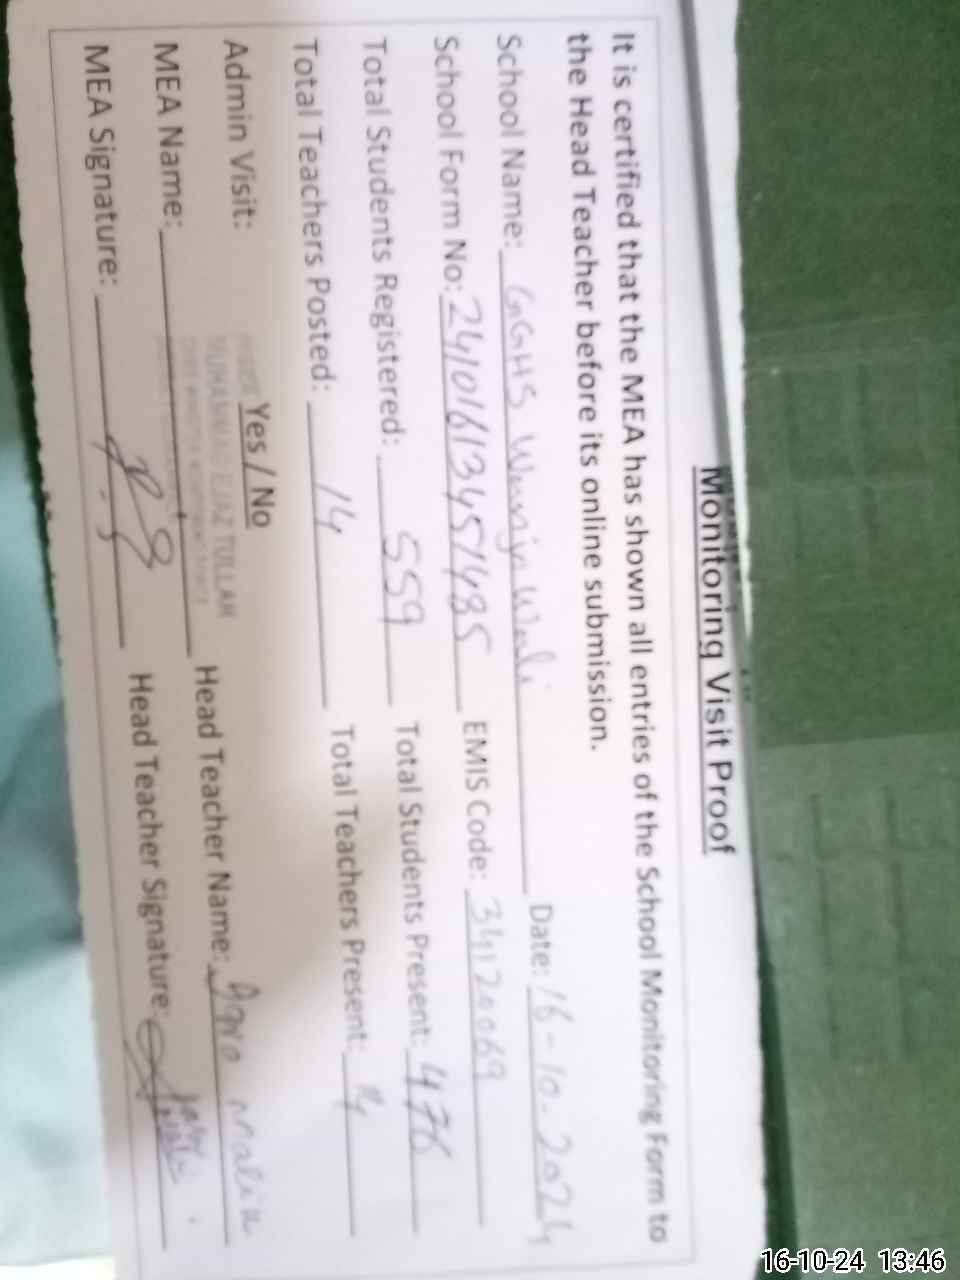 Monitoring Visit Proof
It is certified that the MEA has shown all entries of the School Monitoring Form to
the Head Teacher before its online submission.
School Name: GGHS Date: 16-10-2024
School Form No: EMIS Code: 34120069
Total Students Registered: 559 Total Students Present: 476
Total Teachers Posted: 14 Total Teachers Present: 14
Admin Visit: Yes / No
MUHAMMAD EJAZ TULLAH
MEA Name: Head Teacher Name:
MEA Signature: Head Teacher Signature:
16-10-24 13:46